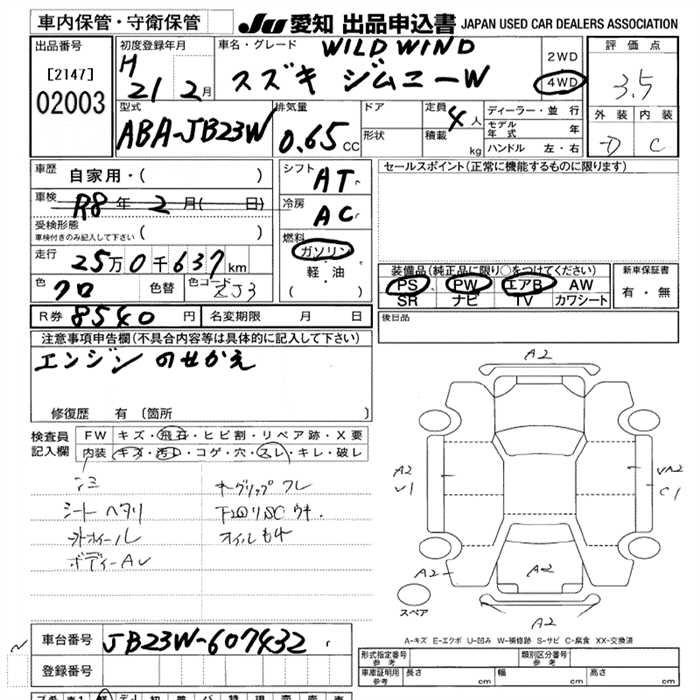 車内保管・守衛保管
JU 愛知 出品申込書 JAPAN USED CAR DEALERS ASSOCIATION
出品番号
[2147]
02003
初度登録年月
H 21 2月
車名・グレード
WILD WIND
スズキ ジムニーW
2WD
4WD
評価点
3.5
外装 内装
D C
型式
ABA-JB23W
排気量
0.65 CC
ドア
形状
定員 4 人
積載 kg
ディーラー・並行
モデル年式 年
ハンドル 左・右
車歴 自家用・( )
車検 R8年 2月( 日)
受検形態
車検付きのみ記入して下さい ( )
走行 25万0千637km
色 クロ 色替 色コード ZJ3
シフト AT
冷房 AC
燃料
ガソリン
軽・油
( )
セールスポイント(正常に機能するものに限ります)
装備品(純正品に限り○をつけてください)
PS PW エアB AW
SR ナビ TV カワシート
新車保証書
有・無
R券 8540 円 名変期限 月 日
後日品
注意事項申告欄(不具合内容等は具体的に記入して下さい)
エンジン のせかえ
修復歴 有 〔箇所
検査員記入欄
FW キズ・飛石・ヒビ割・リペア跡・X要
内装 キズ・汚レ・コゲ・穴・スレ・キレ・破レ
シート ヘタリ
ボディーAU
オイルもれ
A2
A2
U1
C1
A2
A2
A2
A2
スペア
A-キズ E-エクボ U-凹み W-補修跡 S-サビ C-腐食 XX-交換済
車台番号 JB23W-607432
登録番号
形式指定番号 参考
類別区分番号 参考
車庫証明用 参考 長さ cm 幅 cm 高さ cm